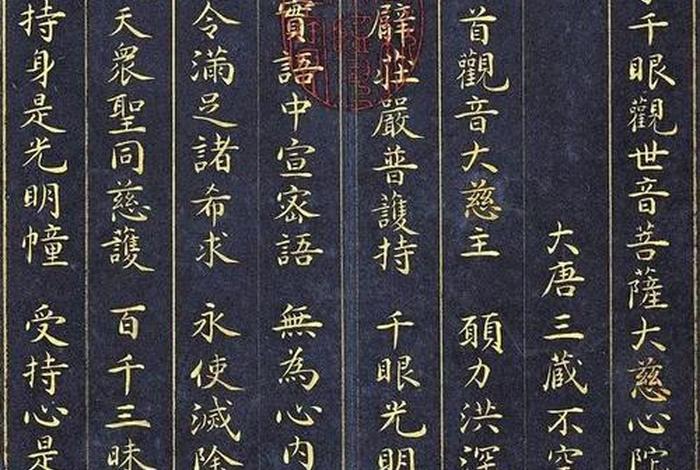 千眼觀世音菩薩大慈心陀
大唐三藏不空
首觀音大慈主 願力洪深
臂莊嚴普護持 千眼光明
實語中宣密語 無為心內
令滿足諸希求 永使滅除
天衆聖同慈護 百千三昧
持身是光明幢 受持心是